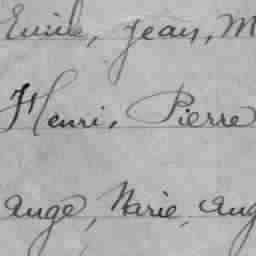 Emile, Jean, M
Henri, Pierre
Ange, Marie, Aug